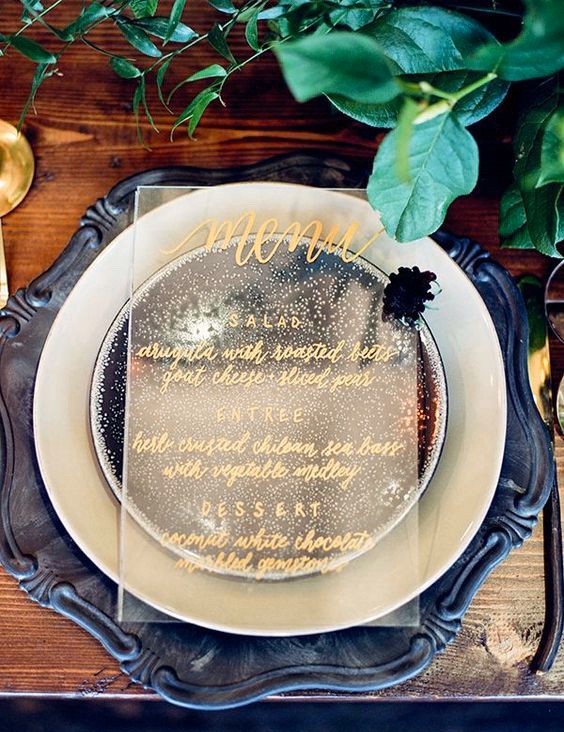 menu
SALAD
arugula with roasted beets
goat cheese + sliced pear
ENTREE
herb crusted chilean sea bass
with vegetable medley
DESSERT
coconut white chocolate
marbled gemstones